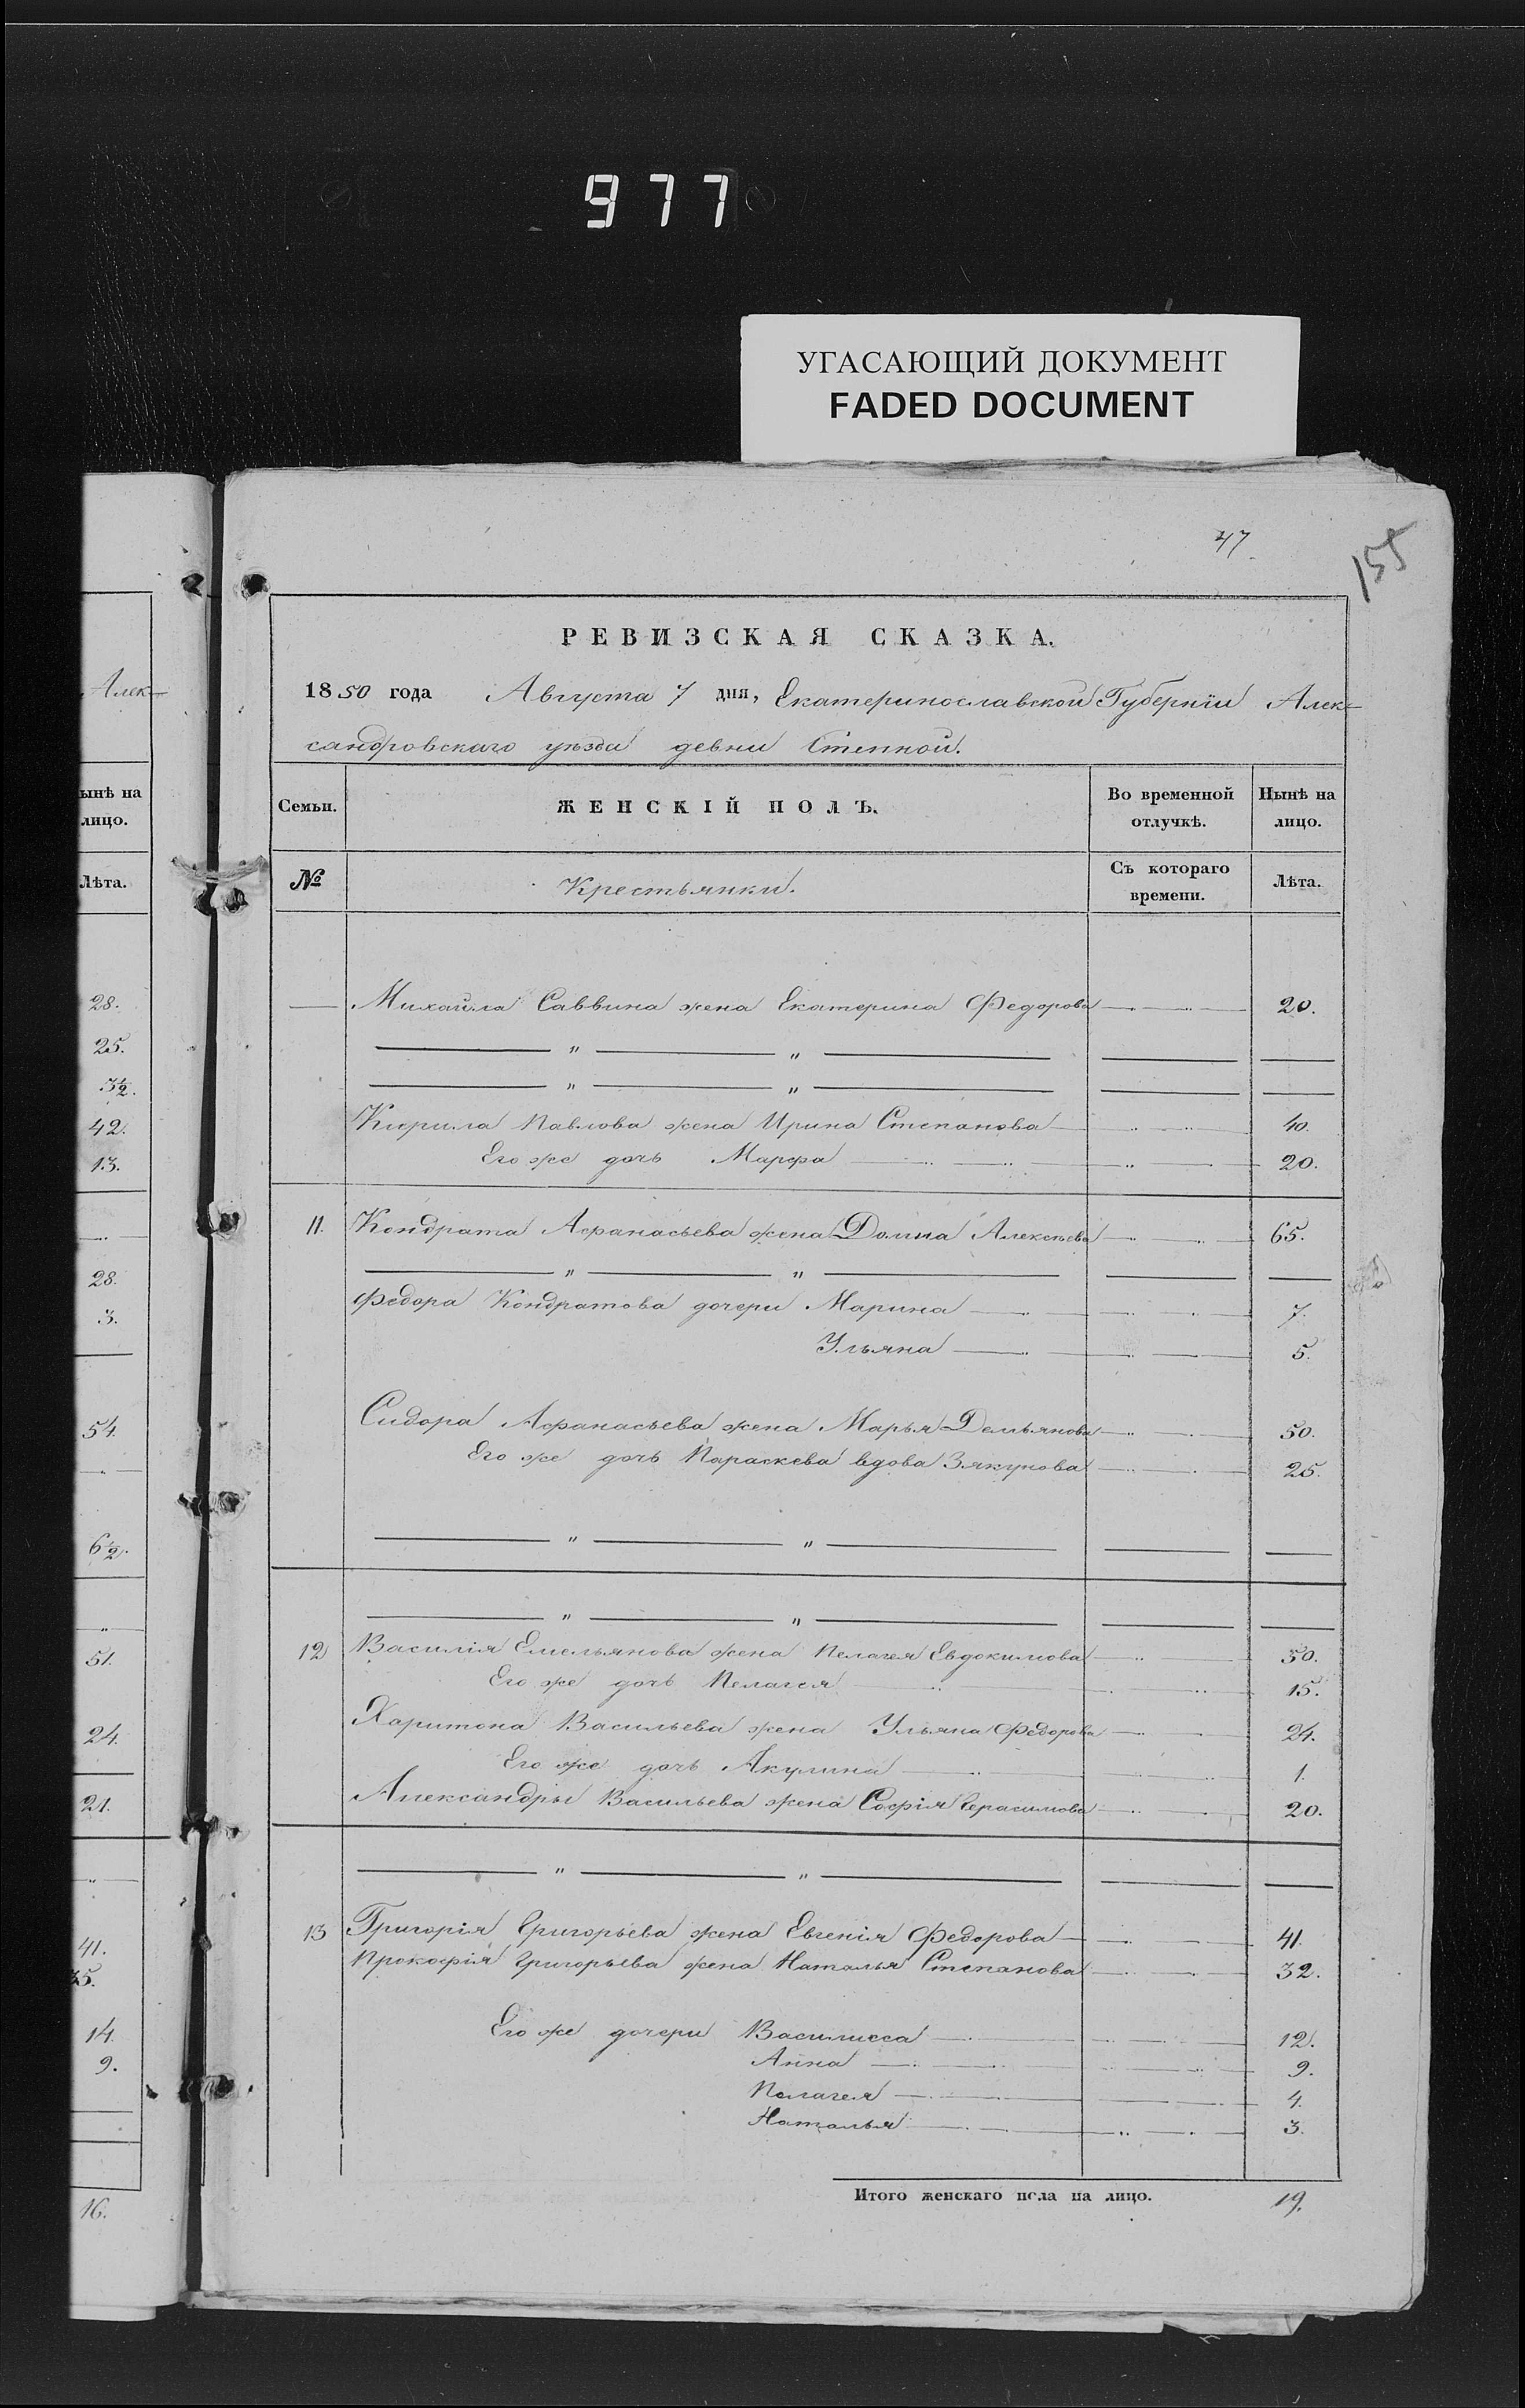 977
УГАСАЮЩИЙ ДОКУМЕНТ
FADED DOCUMENT
47
155
РЕВИЗСКАЯ СКАЗКА.
1850 года Августа 7 дня, Екатеринославской Губерніи Алек-
сандровскаго уѣзда девни Степной.
Семьи. ЖЕНСКІЙ ПОЛЪ. Во временной отлучкѣ. Нынѣ на лицо.
№ Крестьянки. Съ котораго времени. Лѣта.
Михайла Саввина жена Екатерина Федорова 20.
" "
" "
Кирила Павлова жена Ирина Степанова 40.
Его же дочь Марфа 20.
11. Кондрата Афанасьева жена Домна Алексѣева 65.
" "
Федора Кондратова дочери Марина 7.
Ульяна 5.
Сидора Афанасьева жена Марья Демьянова 50.
Его же дочь Параскева вдова Зякунова 25.
" "
" "
12 Василія Емельянова жена Пелагея Евдокимова 50.
Его же дочь Пелагея 15.
Харитона Васильева жена Ульяна Федорова 24.
Его же дочь Акулина 1.
Александры Васильева жена Софія Герасимова 20.
" "
13 Григорія Григорьева жена Евгенія Федорова 41.
Прокофія Григорьева жена Наталья Степанова 32.
Его же дочери Василисса 12.
Анна 9.
Пелагея 4.
Наталья 3.
Итого женскаго пола на лицо. 19.
Алек-
ынѣ на
лицо.
Лѣта.
28.
25.
3½.
42.
13.
28.
3.
54.
6½.
51.
24.
21.
41.
35.
14.
9.
16.